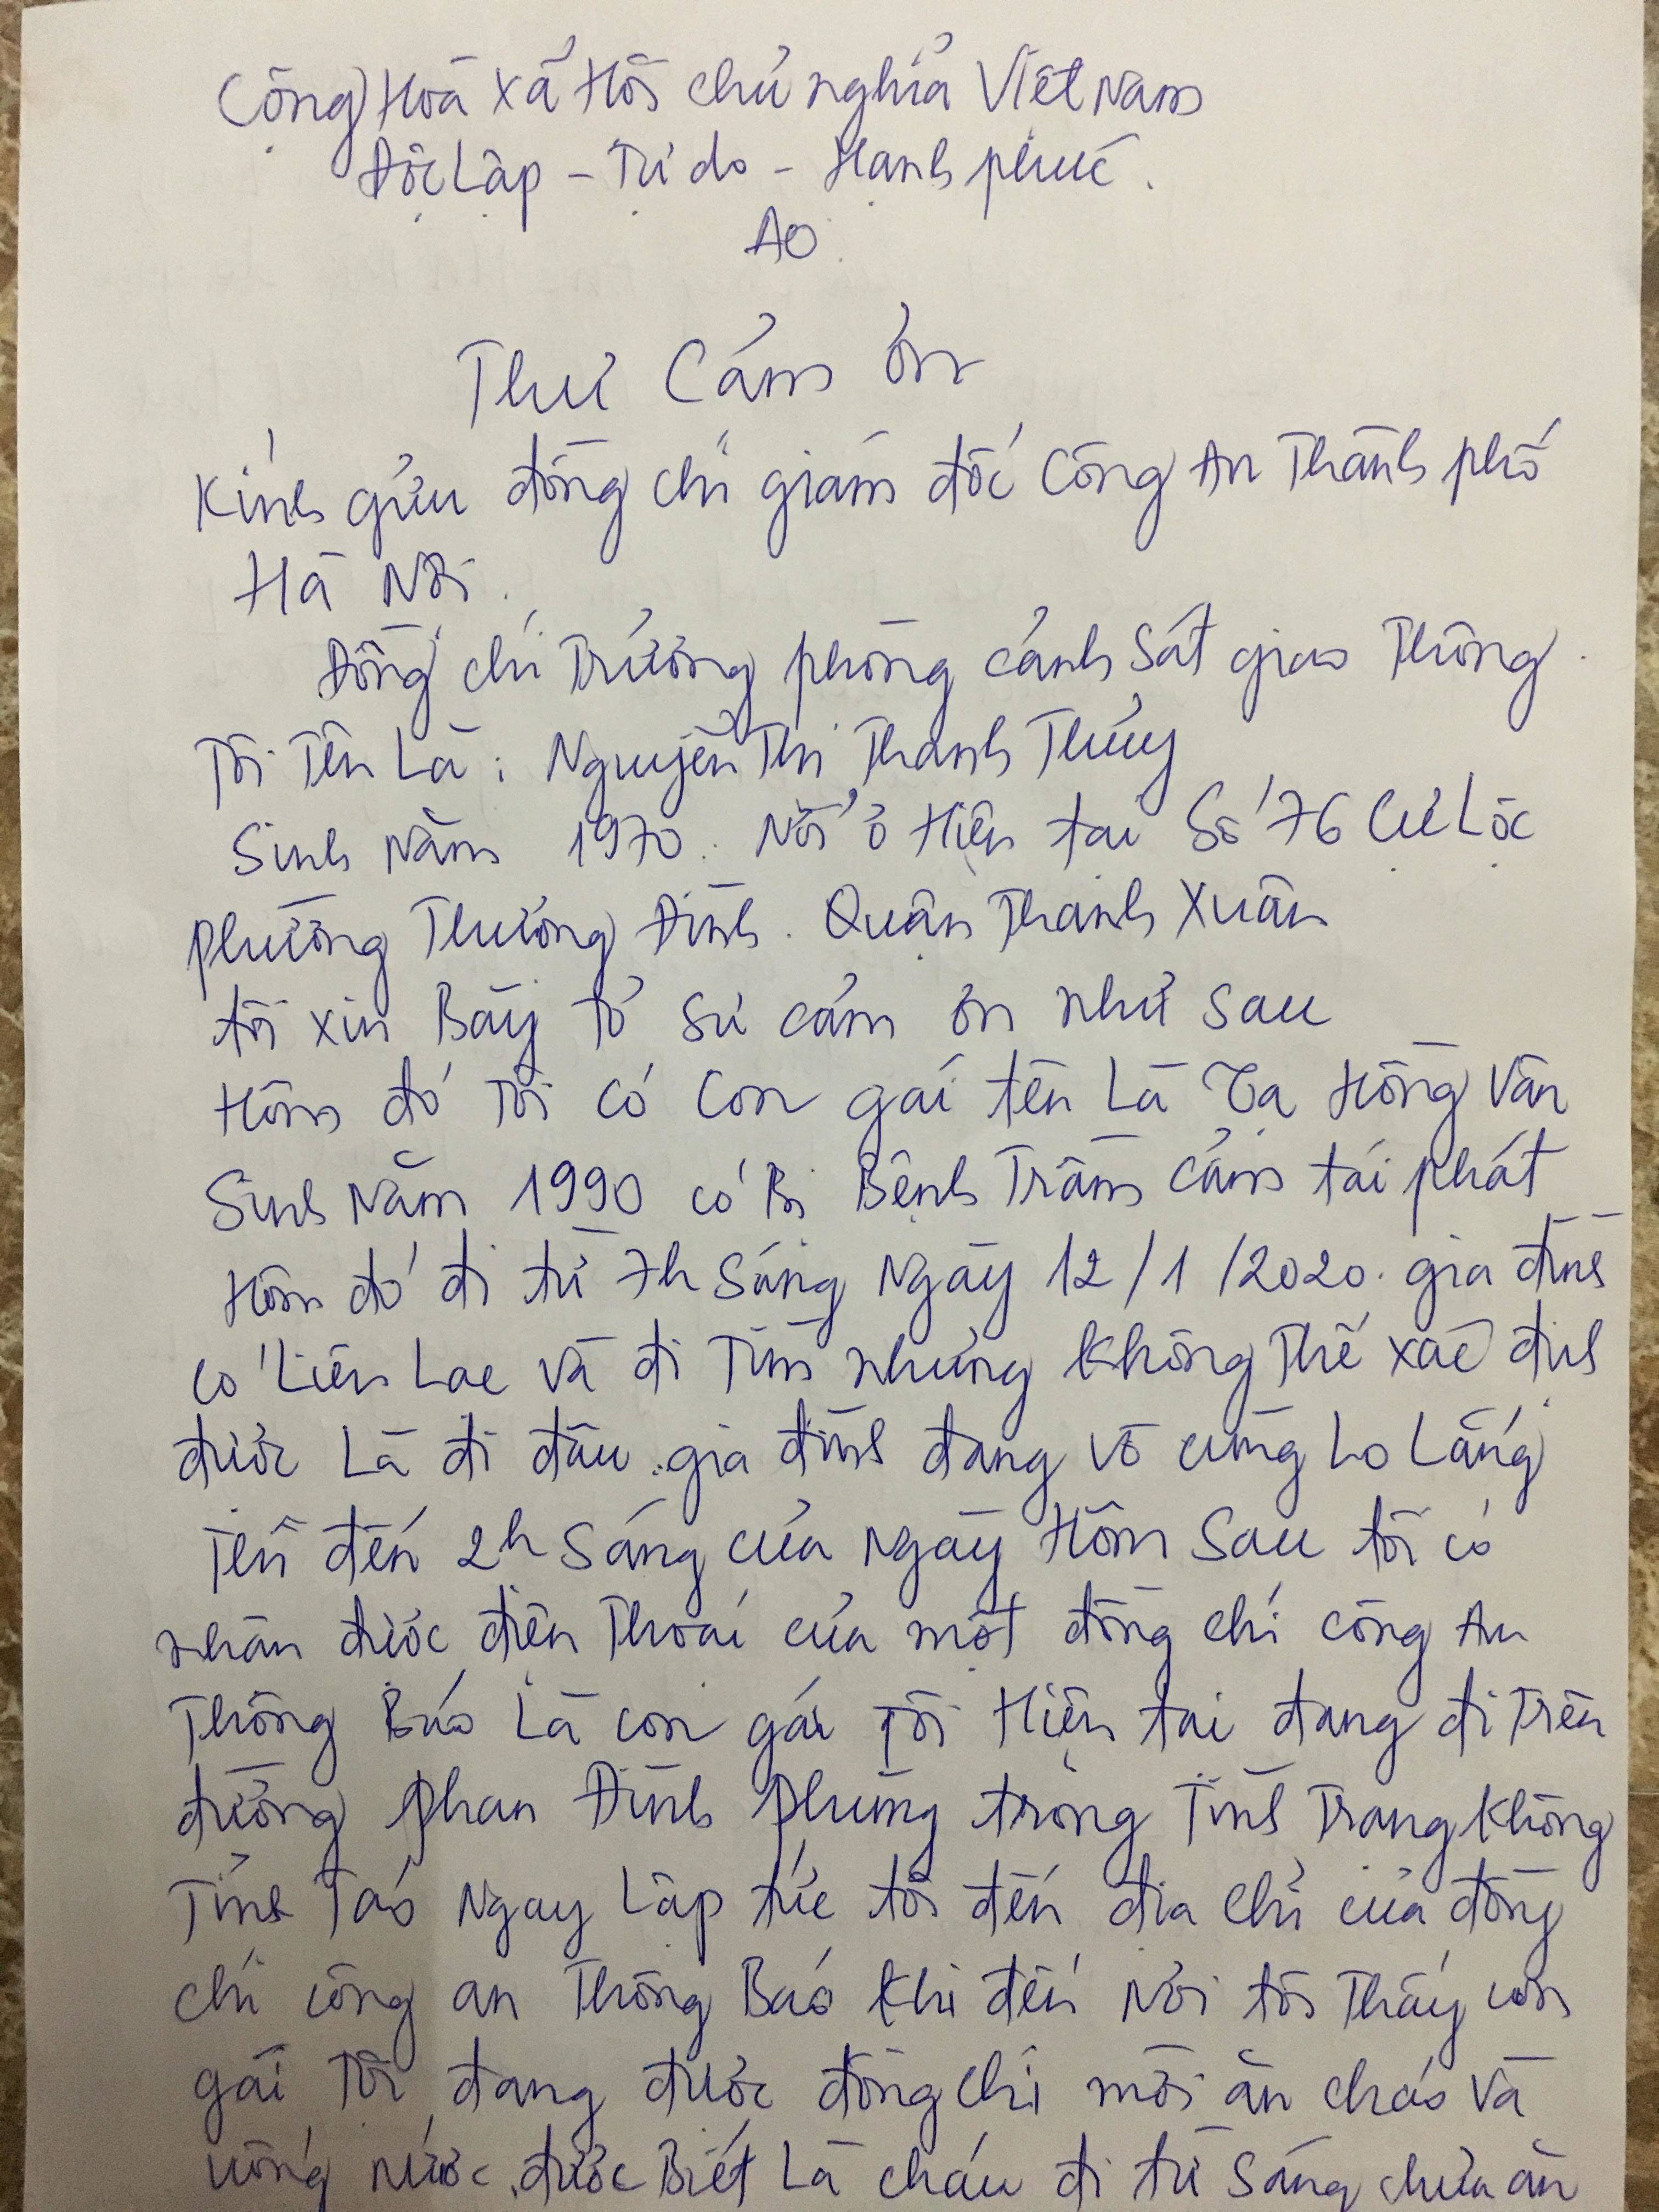 Cộng Hoà Xã Hội chủ nghĩa Việt Nam
Độc Lập - Tự do - Hạnh phúc.
Thư Cảm ơn
Kính gửi đồng chí giám đốc Công An Thành phố
Hà Nội.
Đồng chí Trưởng phòng cảnh Sát giao Thông.
Tôi Tên Là: Nguyễn Thị Thanh Thủy
Sinh Năm 1970. Nơi ở Hiện tại Số 76 Cự Lộc
phường Thượng Đình. Quận Thanh Xuân
tôi xin Bày tỏ Sự cảm ơn như sau
Hôm đó Tôi có Con gái tên Là Tạ Hồng Vân
Sinh Năm 1990 có Bị Bệnh Trầm Cảm tái phát
Hôm đó đi từ 7h Sáng Ngày 12/1/2020. gia đình
có Liên Lạc và đi Tìm nhưng Không Thể xác định
được Là đi đâu. gia đình đang vô cùng Lo Lắng
Tến đến 2h Sáng của Ngày Hôm Sau tôi có
nhận được điện Thoại của một đồng chí công An
Thông Báo Là con gái Tôi Hiện tại đang đi Trên
đường Phan Đình Phùng trong Tình Trạng Không
Tỉnh Táo Ngay Lập tức tôi đến địa chỉ của đồng
chí công an Thông Báo Khi đến Nơi tôi Thấy con
gái Tôi đang được đồng chí mời ăn cháo và
uống nước. được Biết Là cháu đi từ Sáng chưa ăn